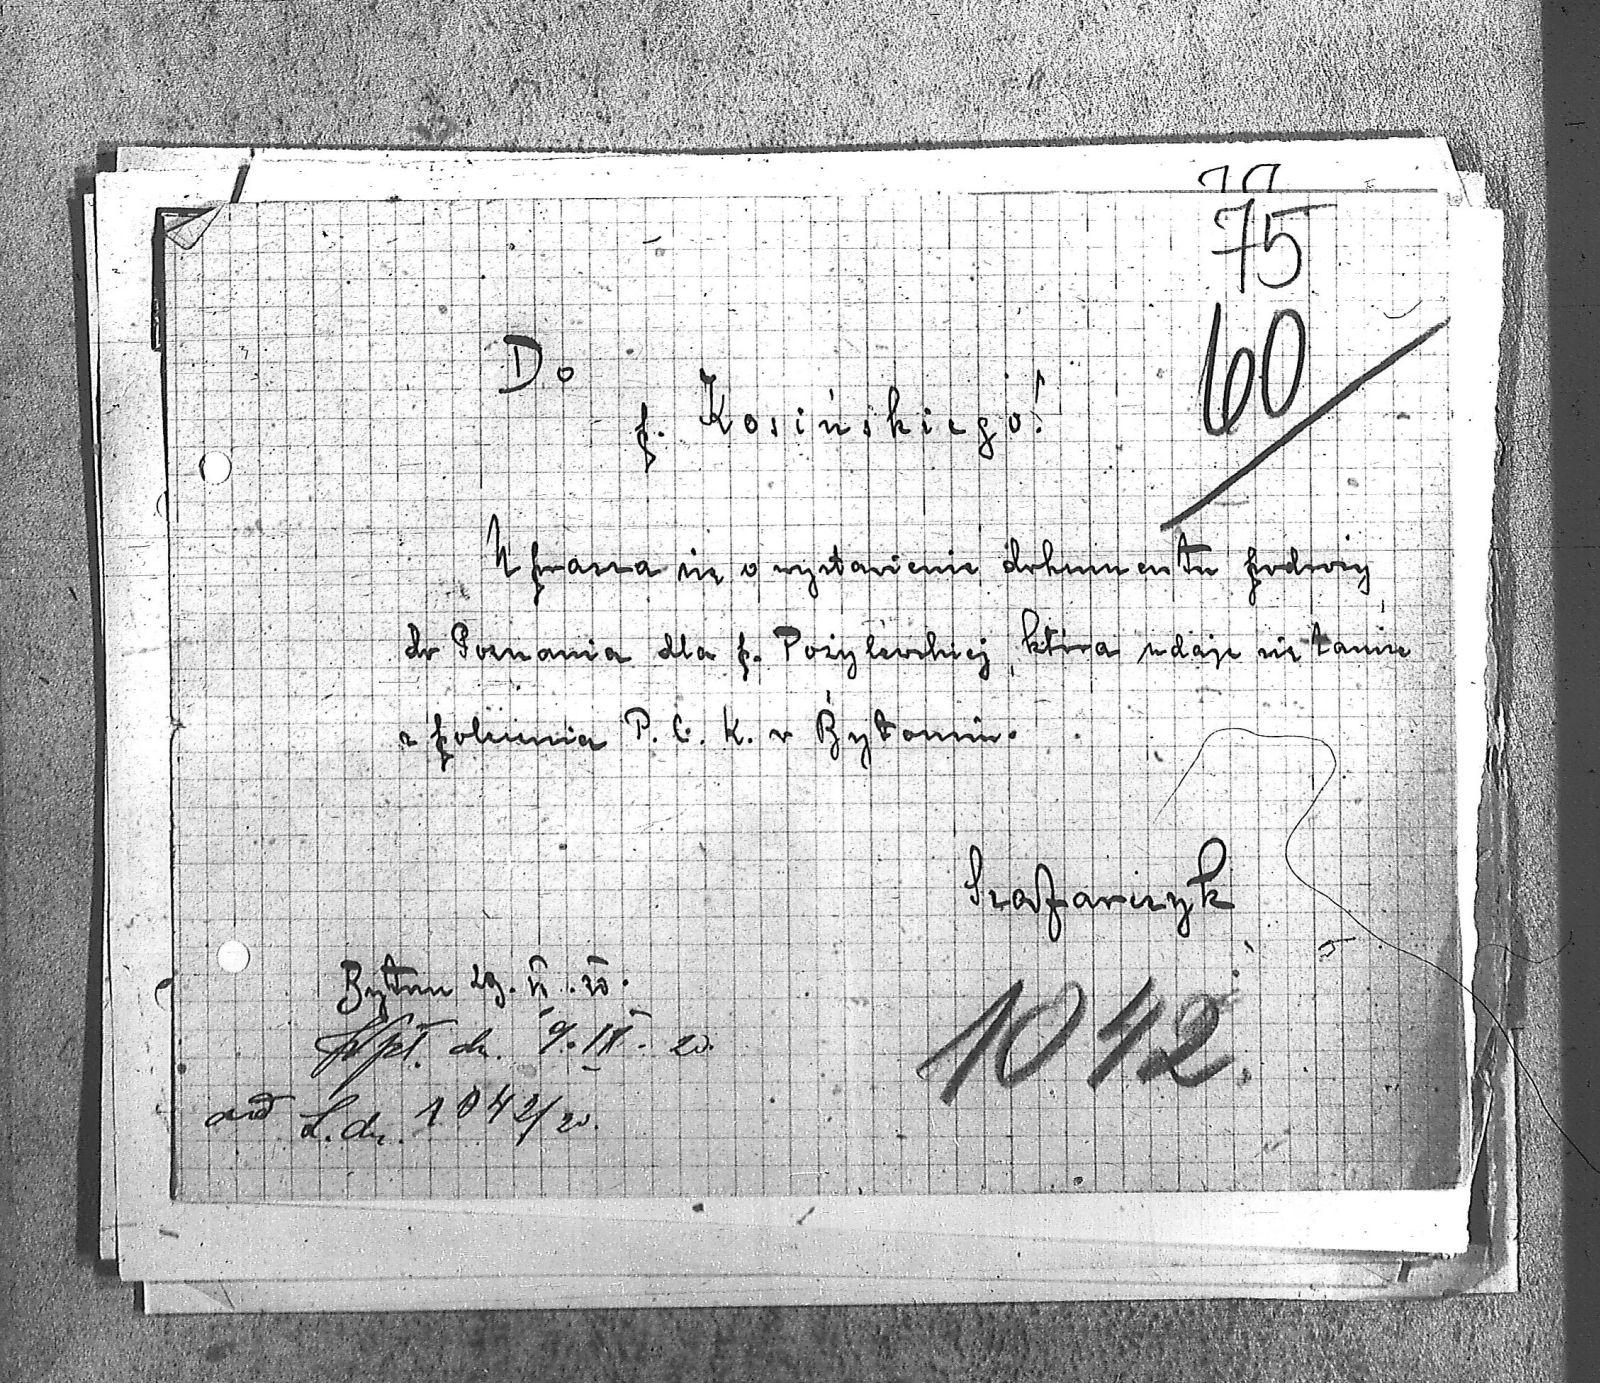 77
75
60
Do
p. Kosińskiego!
Uprasza się o wystawienie dokumentu podróży
do Poznania dla p. Pożylewskiej, która udaje się tamże
z polecenia P. C. K. w Bytomiu.
Szafarczyk
Bytom 29. VI. 20.
dn. 9. IX. 20.
L.dz. 1042/20.
1042.